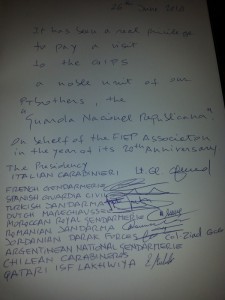 June
It has been a real privilege
to pay a visit
to the GIPS
a noble unit of our
Brothers, the
"Guarda Nacional Republicana".
On behalf of the FIEP Association
in the year of its 20th Anniversary
The Presidency
ITALIAN CARABINIERI
FRENCH GENDARMERIE
SPANISH GUARDIA CIVIL
TURKISH JANDARMA
DUTCH MARECHAUSSEE
MOROCCAN ROYAL GENDARMERIE
ROMANIAN JANDARMA
JORDANIAN DARAK FORCES
ARGENTINEAN NATIONAL GENDARMERIE
CHILEAN CARABINEROS
QATARI ISF LAKHWIYA